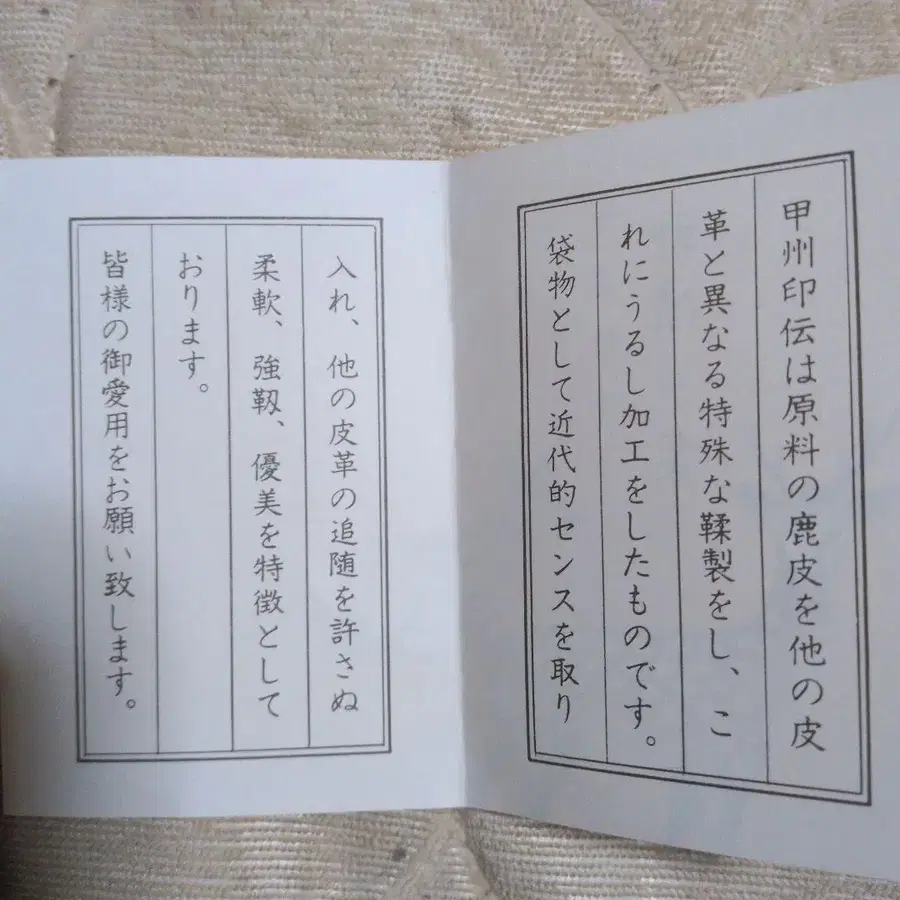 甲州印伝は原料の鹿皮を他の皮
革と異なる特殊な鞣製をし、こ
れにうるし加工をしたものです。
袋物として近代的センスを取り
入れ、他の皮革の追随を許さぬ
柔軟、強靱、優美を特徴として
おります。
皆様の御愛用をお願い致します。